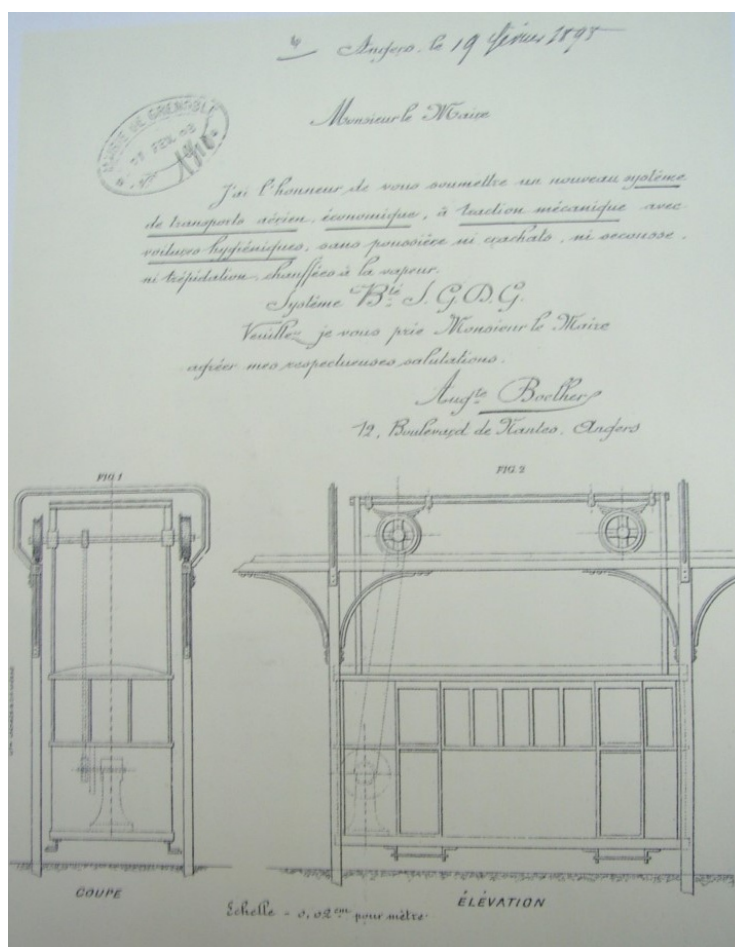 Angers, le 19 février 1898
MAIRIE DE GRENOBLE
FEV. 98
Monsieur le Maire
J'ai l'honneur de vous soumettre un nouveau système
de transports aérien, économique, à traction mécanique avec
voitures hygiéniques, sans poussière ni crachats, ni secousse,
ni trépidation, chauffées à la vapeur.
Système Bté S. G. D. G.
Veuillez je vous prie Monsieur le Maire
agréer mes respectueuses salutations.
Augte Boelher
12, Boulevard de Nantes, Angers
FIG. 1
FIG. 2
COUPE
ÉLÉVATION
Echelle = 0,02 cm pour mètre